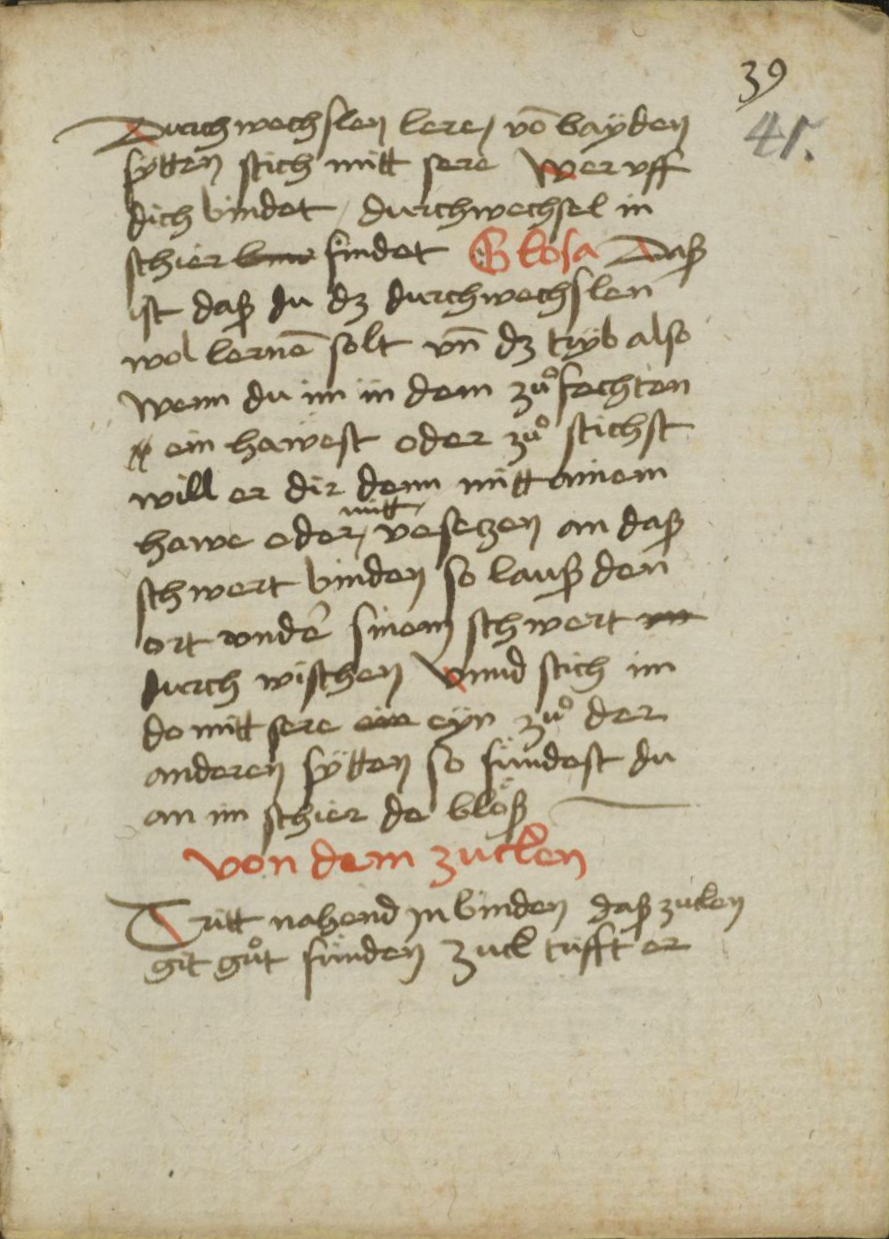 39
41.
Durchwechslen lere / vō bayden
sytten stich mitt sere Wer vff
dich bindet / durchwechsel in
schier findet Glosa Daß
ist daß du dz durchwechslen
wol lernē solt vn̄ dz tryb also
Wenn du im in dem zuͦfechten
ein hawest oder zuͦ stichst
will er dir denn mitt ainem
hawe oder / mitt vesetzen an daß
schwert binden so lauß den
ort vnder sinem schwert
durch wischen Vnnd stich im
do mitt sere eyn zuͦ der
anderen sytten so findest du
an im schier de blöß
von dem zucken
Tritt nahend in binden daß zucken
git guͦt finden Zuck trifft er